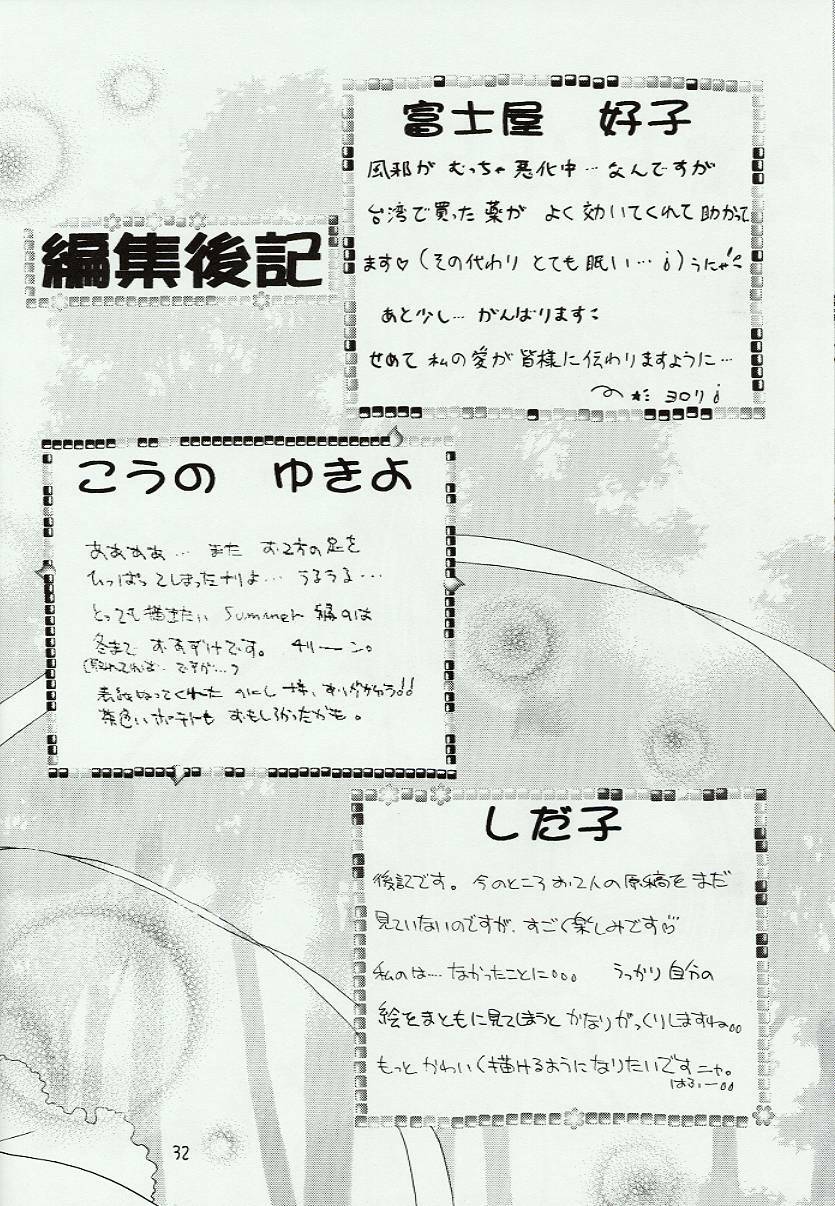 編集後記
富士屋 好子
風邪が むっちゃ悪化中…なんですが
台湾で買った薬が よく効いてくれて助かって
ます♡(その代わり とても眠い…)うにゃ
あと少し…がんばります
せめて 私の愛が皆様に伝わりますように…
ヨロリ
こうの ゆきよ
ああああ… また お2方の足を
ひっぱってしまったナリよ… うるうる…
とっても描きたい Summer 編のは
冬まで おあずけです。 チリーン。
ですが…?
表紙ぬってくれた のにし 様、ありががう!!
茶色いポテトも おもしろかったかも。
しだ子
後記です。今のところお2人の原稿をまだ
見ていないのですが、すごく楽しみです♡
私のは…。なかったことに。。。 うっかり自分の
絵をまともに見てしまうと かなりがっくりしますね。。
もっと かわいく描けるようになりたいですニャ。
はふぅー。。
32